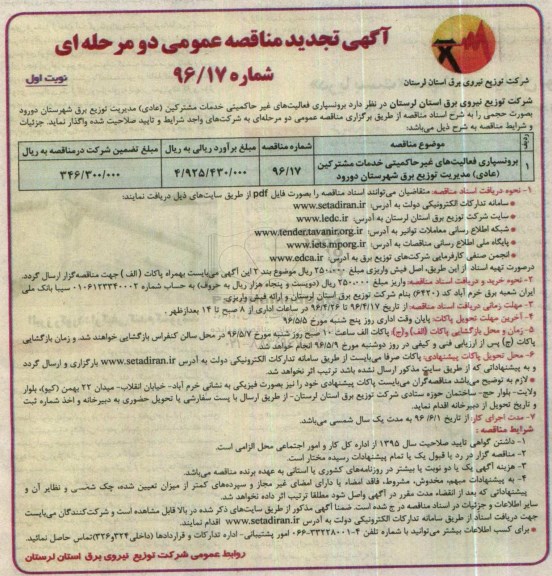 آگهی تجدید مناقصه عمومی دو مرحله ای
شماره ۹۶/۱۷
نوبت اول
شرکت توزیع نیروی برق استان لرستان
شرکت توزیع نیروی برق استان لرستان در نظر دارد برونسپاری فعالیت‌های غیر حاکمیتی خدمات مشترکین (عادی) مدیریت توزیع برق شهرستان دورود
بصورت حجمی را به شرح اسناد مناقصه از طریق برگزاری مناقصه عمومی دو مرحله‌ای به شرکت‌های واجد شرایط و تایید صلاحیت شده واگذار نماید. جزئیات
و شرایط مناقصه به شرح ذیل می‌باشد:
ردیف موضوع مناقصه شماره مناقصه مبلغ برآورد ریالی به ریال مبلغ تضمین شرکت درمناقصه به ریال
۱ برونسپاری فعالیت‌های غیرحاکمیتی خدمات مشترکین (عادی) مدیریت توزیع برق شهرستان دورود ۹۶/۱۷ ۴/۹۲۵/۴۳۰/۰۰۰ ۳۴۶/۳۰۰/۰۰۰
۱- نحوه دریافت اسناد مناقصه: متقاضیان می‌توانند اسناد مناقصه را بصورت فایل pdf از طریق سایت‌های ذیل دریافت نمایند:
* سامانه تدارکات الکترونیکی دولت به آدرس: www.setadiran.ir
* سایت شرکت توزیع برق استان لرستان به آدرس: www.ledc.ir
* شبکه اطلاع رسانی معاملات توانیر به آدرس: www.tender.tavanir.org.ir
* پایگاه ملی اطلاع رسانی مناقصات به آدرس: www.iets.mporg.ir
* انجمن صنفی کارفرمایی شرکت‌های توزیع برق به آدرس: www.edca.ir
درصورت تهیه اسناد از این طریق، اصل فیش واریزی مبلغ ۲۵۰.۰۰۰ ریال موضوع بند ۲ این آگهی می‌بایست بهمراه پاکات (الف) جهت مناقصه‌گزار ارسال گردد.
۲- نحوه خرید و دریافت اسناد مناقصه: واریز مبلغ ۲۵۰.۰۰۰ ریال (دویست و پنجاه هزار ریال به حروف) به حساب شماره ۰۱۰۶۱۲۳۳۴۰۰۰۲ سیبا بانک ملی
ایران شعبه برق خرم آباد کد (۶۴۲۰) بنام شرکت توزیع برق استان لرستان و ارائه فیش واریزی
۳- مهلت زمانی دریافت اسناد مناقصه: از تاریخ ۹۶/۴/۱۷ تا ۹۶/۴/۲۶ در ساعات اداری از ۸ صبح تا ۱۴ بعدازظهر
۴- آخرین مهلت تحویل پاکات: پایان وقت اداری روز پنج شنبه مورخ ۹۶/۵/۵
۵- زمان و محل بازگشایی پاکات (الف) و(ج): پاکات الف ساعت ۱۰ صبح روز شنبه مورخ ۹۶/۵/۷ در محل سالن کنفراس بازگشایی خواهند شد. و زمان بازگشایی
پاکات (ج) پس از ارزیابی فنی و کیفی در روز دوشنبه مورخ ۹۶/۵/۹ انجام خواهد شد.
۶- محل تحویل پاکات پیشنهادی: پاکات صرفا می‌بایست از طریق سامانه تدارکات الکترونیکی دولت به آدرس www.setadiran.ir بارگزاری و ارسال گردد
و به پیشنهاداتی که از طریق سایت مذکور ارسال نشده باشد ترتیب اثر نخواهد شد.
* لازم به توضیح می‌باشد مناقصه‌گران می‌بایست پاکات پیشنهادی خود را نیز بصورت فیزیکی به نشانی خرم آباد- خیابان انقلاب- میدان ۲۲ بهمن (کیو)، بلوار
ولایت- بلوار حج- ساختمان حوزه ستادی شرکت توزیع برق استان لرستان- از طریق ارسال با پست سفارشی یا تحویل حضوری به دبیرخانه و اخذ شماره ثبت
و تاریخ تحویل از دبیرخانه اقدام نماید.
۷- مدت اجرای کار: از تاریخ ۹۶/۶/۱ به مدت یک سال شمسی می‌باشد.
شرایط مناقصه:
۱- داشتن گواهی تایید صلاحیت سال ۱۳۹۵ از اداره کل کار و امور اجتماعی محل الزامی است.
۲- مناقصه گزار در رد یا قبول یک یا تمام پیشنهادات رسیده مختار است.
۳- هزینه آگهی یک یا دو نوبت یا بیشتر در روزنامه‌های کشوری یا استانی به عهده برنده مناقصه می‌باشد.
۴- به پیشنهادات مبهم، مخدوش، مشروط، فاقد امضاء یا دارای امضای غیر مجاز و سپرده‌های کمتر از میزان تعیین شده، چک شخصی و نظایر آن و
پیشنهاداتی که بعد از انقضاء مدت مقرر در آگهی واصل شود مطلقا ترتیب اثر داده نخواهد شد.
سایر اطلاعات و جزئیات در اسناد مناقصه درج شده است. ضمناً آگهی مذکور از طریق سایت‌های ذکر شده در بالا قابل مشاهده است و شرکت‌کنندگان می‌بایست
جهت دریافت اسناد از طریق سامانه تدارکات الکترونیکی دولت به آدرس www.setadiran.ir اقدام نمایند.
* برای کسب اطلاعات بیشتر می‌توانید با شماره تلفن ۴-۰۶۶-۳۳۲۲۸۰۰۱ امور پشتیبانی- اداره تدارکات و قراردادها (داخلی ۳۲۴و۳۲۶) تماس حاصل نمائید.
روابط عمومی شرکت توزیع نیروی برق استان لرستان